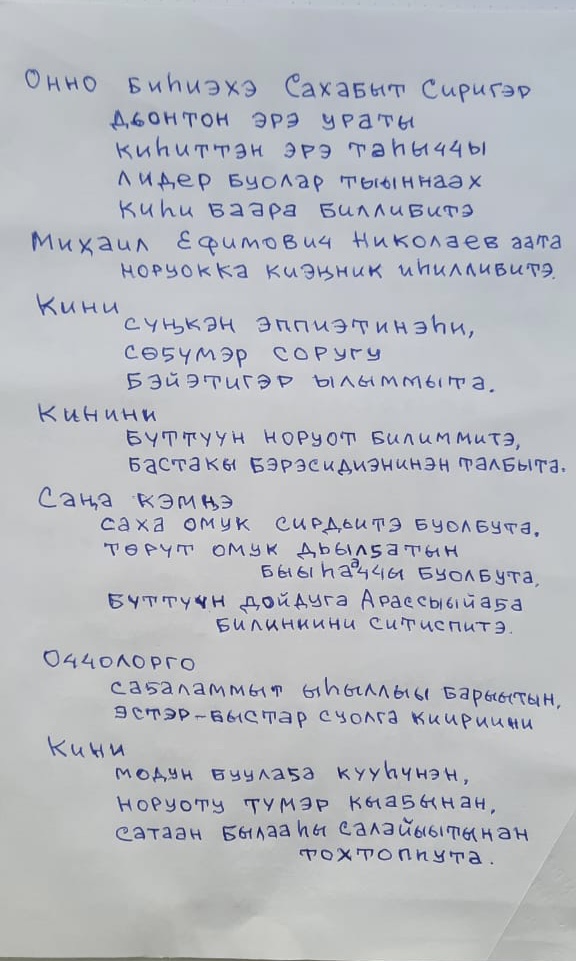 Онно биһиэхэ Сахабыт Сиригэр
дьонтон эрэ ураты
киһиттэн эрэ таһыччы
лидер буолар тыыннаах
киһи баара биллибитэ
Михаил Ефимович Николаев аата
норуокка киэҥник иһиллибитэ.
Кини
сүҥкэн эппиэтинэһи,
сөбүмэр соругу
бэйэтигэр ылыммыта.
Кинини
бүттүүн норуот билиммитэ,
бастакы бэрэсидиэнинэн талбыта.
Саҥа кэмҥэ
саха омук сирдьитэ буолбута.
төрүт омук дьылҕатын
быыһааччы буолбута,
бүттүүн дойдуга Арассыыйаҕа
билиниини ситиспитэ.
Оччолорго
саҕаламмыт ыһыллыы барыытын,
эстэр-быстар суолга киириини
Кини
модун буулаҕа күүһүнэн,
норуоту түмэр кыаҕынан,
сатаан былааһы салайыытынан
тохтоппута.